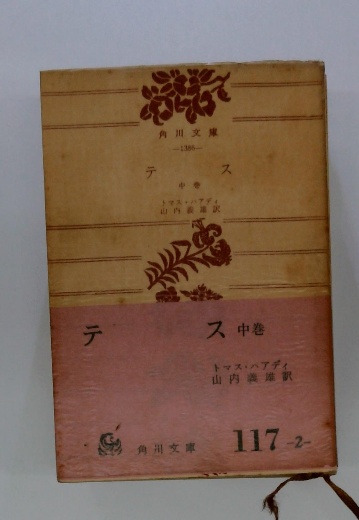 角川文庫
—1386—
テス
中巻
トマス・ハアディ
山内義雄訳
テス 中巻
トマス・ハアディ
山内義雄訳
角川文庫 117 -2-